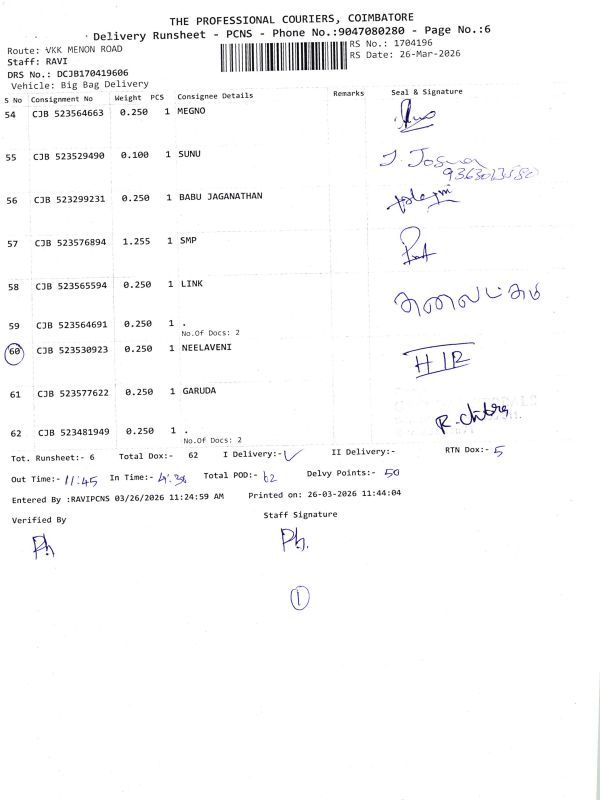 THE PROFESSIONAL COURIERS, COIMBATORE
Delivery Runsheet - PCNS - Phone No.:9047080280 - Page No.:6
Route: VKK MENON ROAD RS No.: 1704196
Staff: RAVI RS Date: 26-Mar-2026
DRS No.: DCJB170419606
Vehicle: Big Bag Delivery
S No Consignment No Weight PCS Consignee Details Remarks Seal & Signature
54 CJB 523564663 0.250 1 MEGNO
55 CJB 523529490 0.100 1 SUNU J. Joshua
56 CJB 523299231 0.250 1 BABU JAGANATHAN
57 CJB 523576894 1.255 1 SMP
58 CJB 523565594 0.250 1 LINK
59 CJB 523564691 0.250 1 .
No.Of Docs: 2
60 CJB 523530923 0.250 1 NEELAVENI HIR
61 CJB 523577622 0.250 1 GARUDA
62 CJB 523481949 0.250 1 . R. Chitra
No.Of Docs: 2
Tot. Runsheet:- 6 Total Dox:- 62 I Delivery:- ✓ II Delivery:- RTN Dox:- 5
Out Time:- 11:45 In Time:- 4:30 Total POD:- 62 Delvy Points:- 50
Entered By :RAVIPCNS 03/26/2026 11:24:59 AM Printed on: 26-03-2026 11:44:04
Verified By Staff Signature
Ph Ph.
1